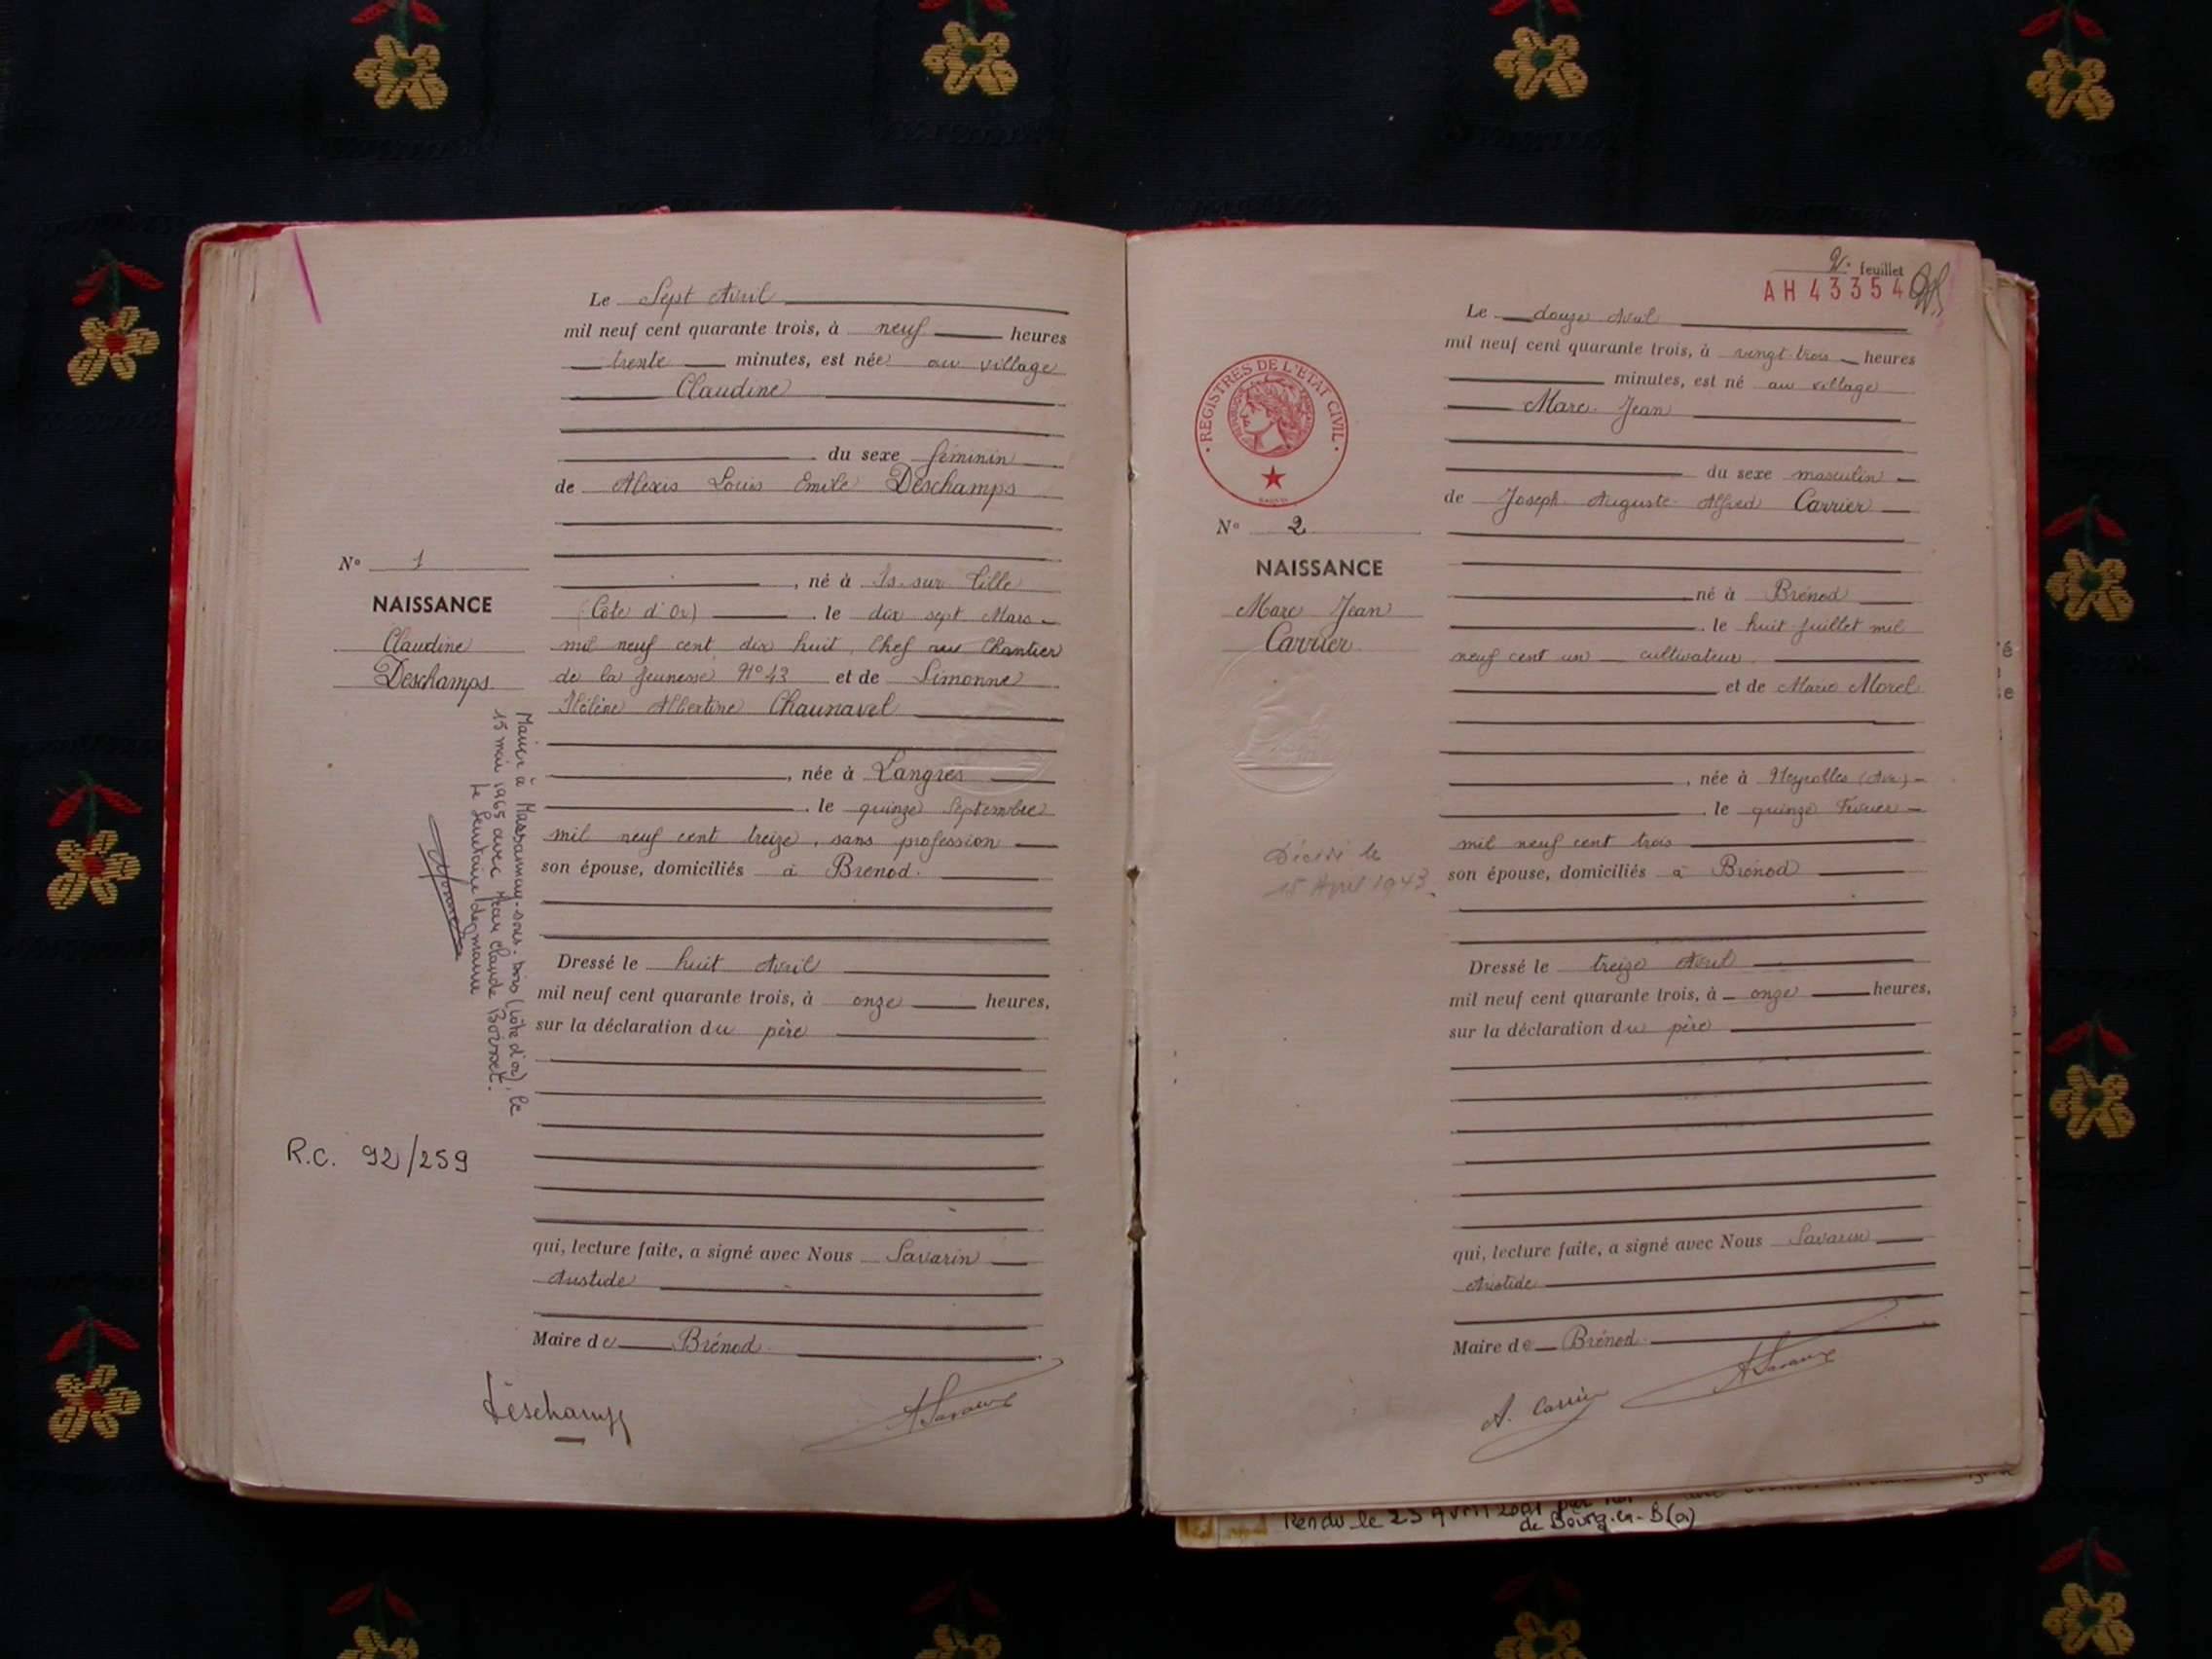 Le Sept Avril
mil neuf cent quarante trois, à neuf heures
trente minutes, est née au village
Claudine
du sexe féminin
de Alexis Louis Emile Deschamps
, né à Is-sur-Tille
(Côte d'Or) , le dix sept Mars
mil neuf cent dix huit, Chef au Chantier
de la Jeunesse N°43 et de Simonne
Hélène Albertine Chaunavel
, née à Langres
, le quinze Septembre
mil neuf cent treize, sans profession
son épouse, domiciliés à Brénod.
Dressé le huit Avril
mil neuf cent quarante trois, à onze heures,
sur la déclaration du père
qui, lecture faite, a signé avec Nous Savarin
Aristide
Maire de Brénod.
Deschamps
N° 1
NAISSANCE
Claudine
Deschamps
Mariée à Marsannay-sous-bois (Côte d'or), le
15 mai 1965 avec Jean Claude
Le Secrétaire de mairie
R.C. 92/259
2e feuillet
AH 43354
REGISTRES DE L'ETAT CIVIL
N° 2
NAISSANCE
Marc Jean
Carrier
Décédé le
15 Avril 1943
Le douze Avril
mil neuf cent quarante trois, à vingt-trois heures
minutes, est né au village
Marc Jean
du sexe masculin
de Joseph Auguste Alfred Carrier
né à Brénod
, le huit Juillet mil
neuf cent un cultivateur
et de Marie Morel
, née à Neyrolles (Ain)
, le quinze Février
mil neuf cent trois
son épouse, domiciliés à Brénod
Dressé le treize Avril
mil neuf cent quarante trois, à onze heures,
sur la déclaration du père
qui, lecture faite, a signé avec Nous Savarin
Aristide
Maire de Brénod.
A. Carrier
Rendu le 23 avril 2001 par
de Bourg-en-B(a)